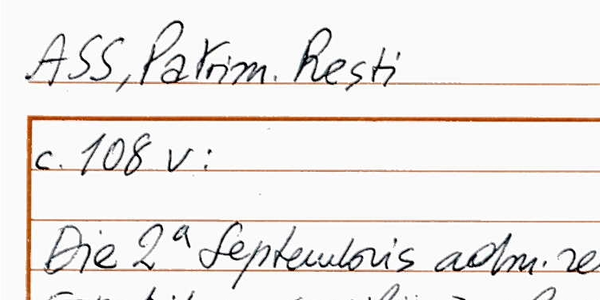 ASS, Patrim. Resti
c. 108 v:
Die 2ª Septembris adm. re